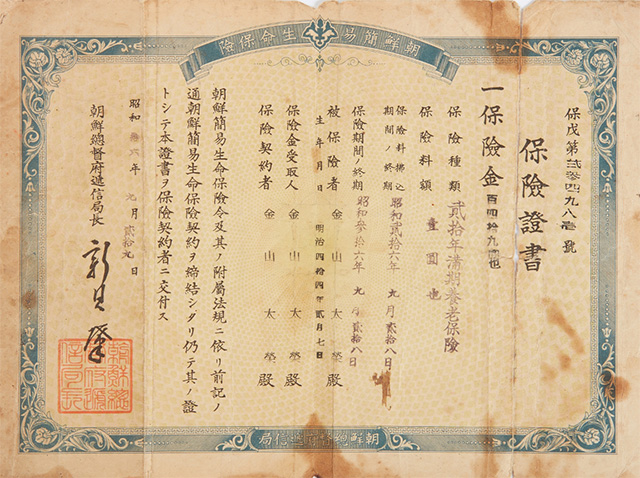 朝鮮簡易生命保險
保戊第貳參四九八壹號
保險證書
一保險金百四拾九圓也
保險種類 貳拾年滿期養老保險
保險料額 壹圓也
保險料拂込期間ノ終期 昭和貳拾六年九月貳拾八日
保險期間ノ終期 昭和參拾六年九月貳拾八日
被保險者 金山太榮殿
生年月日 明治四拾四年貳月七日
保險金受取人 金山太榮殿
保險契約者 金山太榮殿
朝鮮簡易生命保險令及其ノ附屬法規ニ依リ前記ノ
通朝鮮簡易生命保險契約ヲ締結シタリ仍テ其ノ證
トシテ本證書ヲ保險契約者ニ交付ス
昭和 六年九月貳拾九日
朝鮮總督府遞信局長
朝鮮總督府遞信局